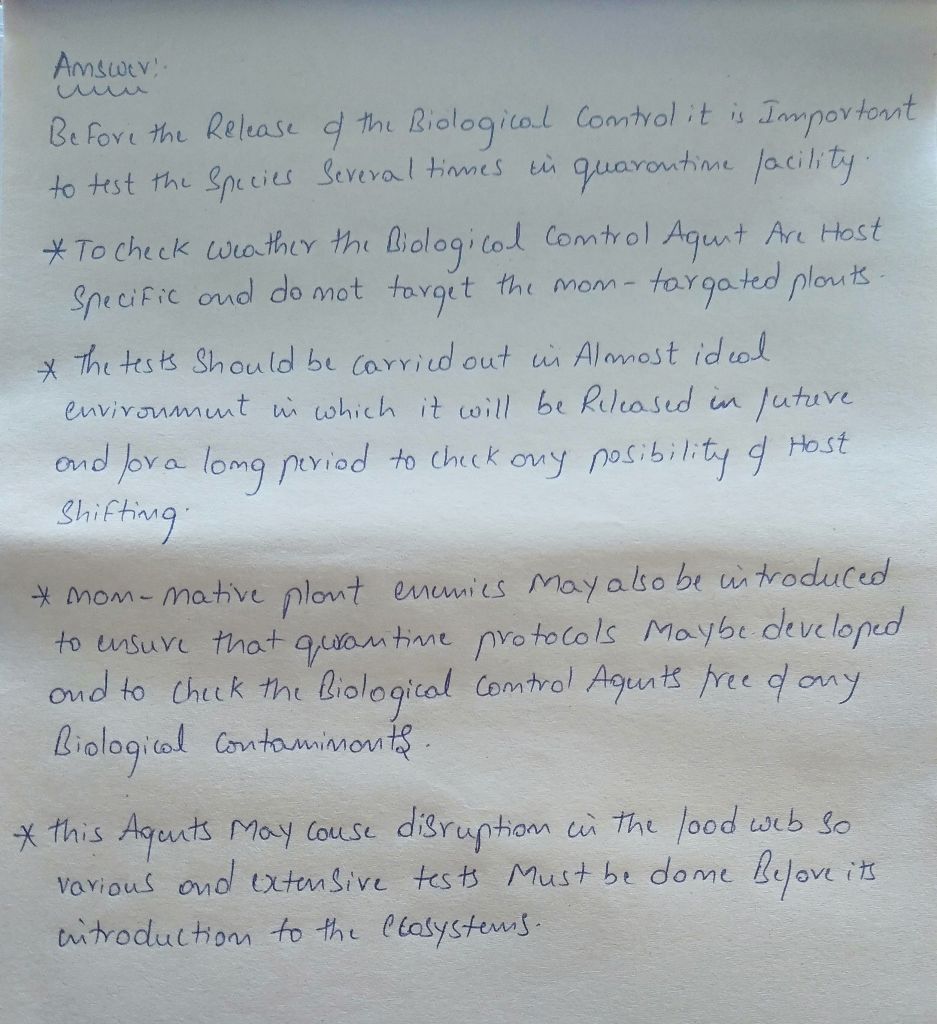 Answer:-
Before the Release of the Biological Control it is Important
to test the Species Several times in quarantine facility.
* To check weather the Biological Control Agent Are Host
Specific and do not target the non-targated plants.
* The tests Should be carried out in Almost ideal
environment in which it will be Released in future
and for a long period to check any posibility of Host
Shifting.
* non-native plant enemies May also be introduced
to ensure that qurantine protocols Maybe developed
and to check the Biological Control Agents free of any
Biological contaminants.
* this Agents May cause disruption in the food web so
various and extensive tests Must be done Before its
introduction to the ecosystems.